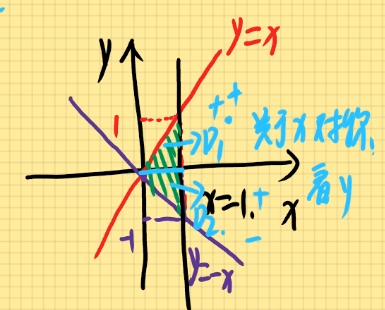 y
y=x
1
+ +
D₁
关于x对称.
看y
x=-1.
+
x
D₂.
-1
-
y=-x